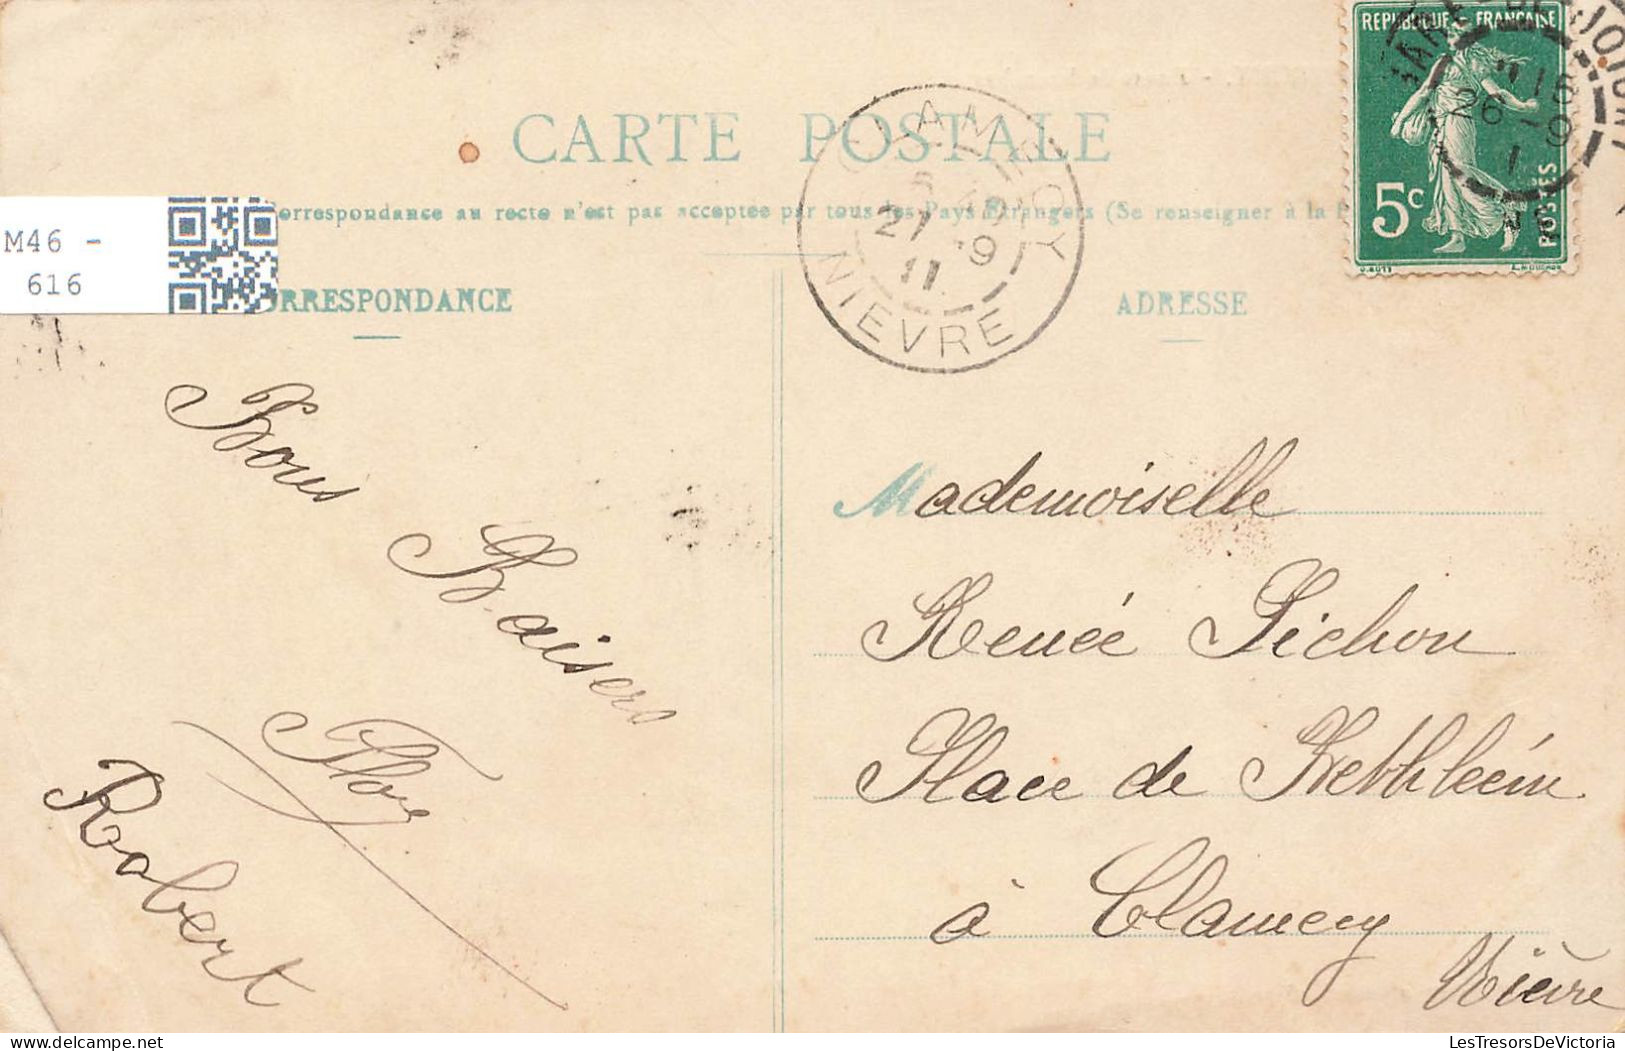 REPUBLIQUE FRANÇAISE
5c
POSTES
CARTE POSTALE
CLAMECY
27 -9
11
NIEVRE
26 -9
orrespondance au recto n'est pas acceptée par tous les Pays Etrangers (Se renseigner à la
M46 -
616
ORRESPONDANCE
ADRESSE
Bons
Baisers
Flore
Robert
Mademoiselle
Renée Pichon
Place de Bethléem
à Clamecy
Nièvre
www.LesTresorsDeVictoria.com